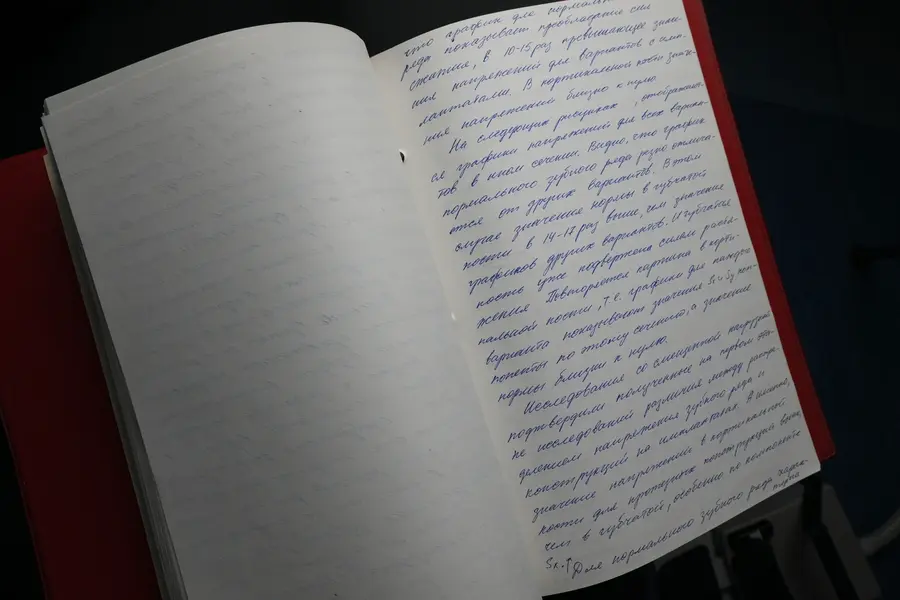 что график для нормально
ряда показывает преобладание сил
сжатия, в 10-15 раз превышающие значе-
ния напряжений для вариантов с имп-
лантатами. В кортикальной кости значе-
ния напряжений близко к нулю.
На следующих рисунках , отображают-
ся графики напряжений для всех вариан-
тов в ином сечении. Видно, что график
нормального зубного ряда резко отлича-
ется от других вариантов. В этом
случае значение нормы в губчатой
кости в 14-17 раз выше, чем значение
графиков других вариантов. И губчатая
кость уже подвержена силам растя-
жения. Повторяется картина в корти-
кальной кости, т.е. графики для каждого
варианта показывают значения Sx и Sy ком-
поненты по этому сечению, а значение
нормы близки к нулю.
Исследования со смещенной нагрузкой
подтвердили полученные на первом эта-
пе исследований различия между распре-
делением напряжения зубного ряда и
конструкций на имплантатах. А именно,
значение напряжений в кортикальной
кости для протезных конструкций выше,
чем в губчатой, особенно по компоненте
Sx. Для нормального зубного ряда